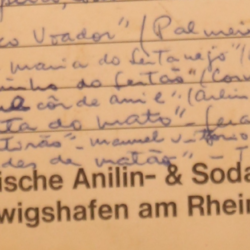 co Voador" / (Palmei
maria do sertanejo" (
nho do sertão" / (Co
côr de anil" (
ta do mato" -
- manuel
de matão" -
ische Anilin- & Soda
wigshafen am Rhein